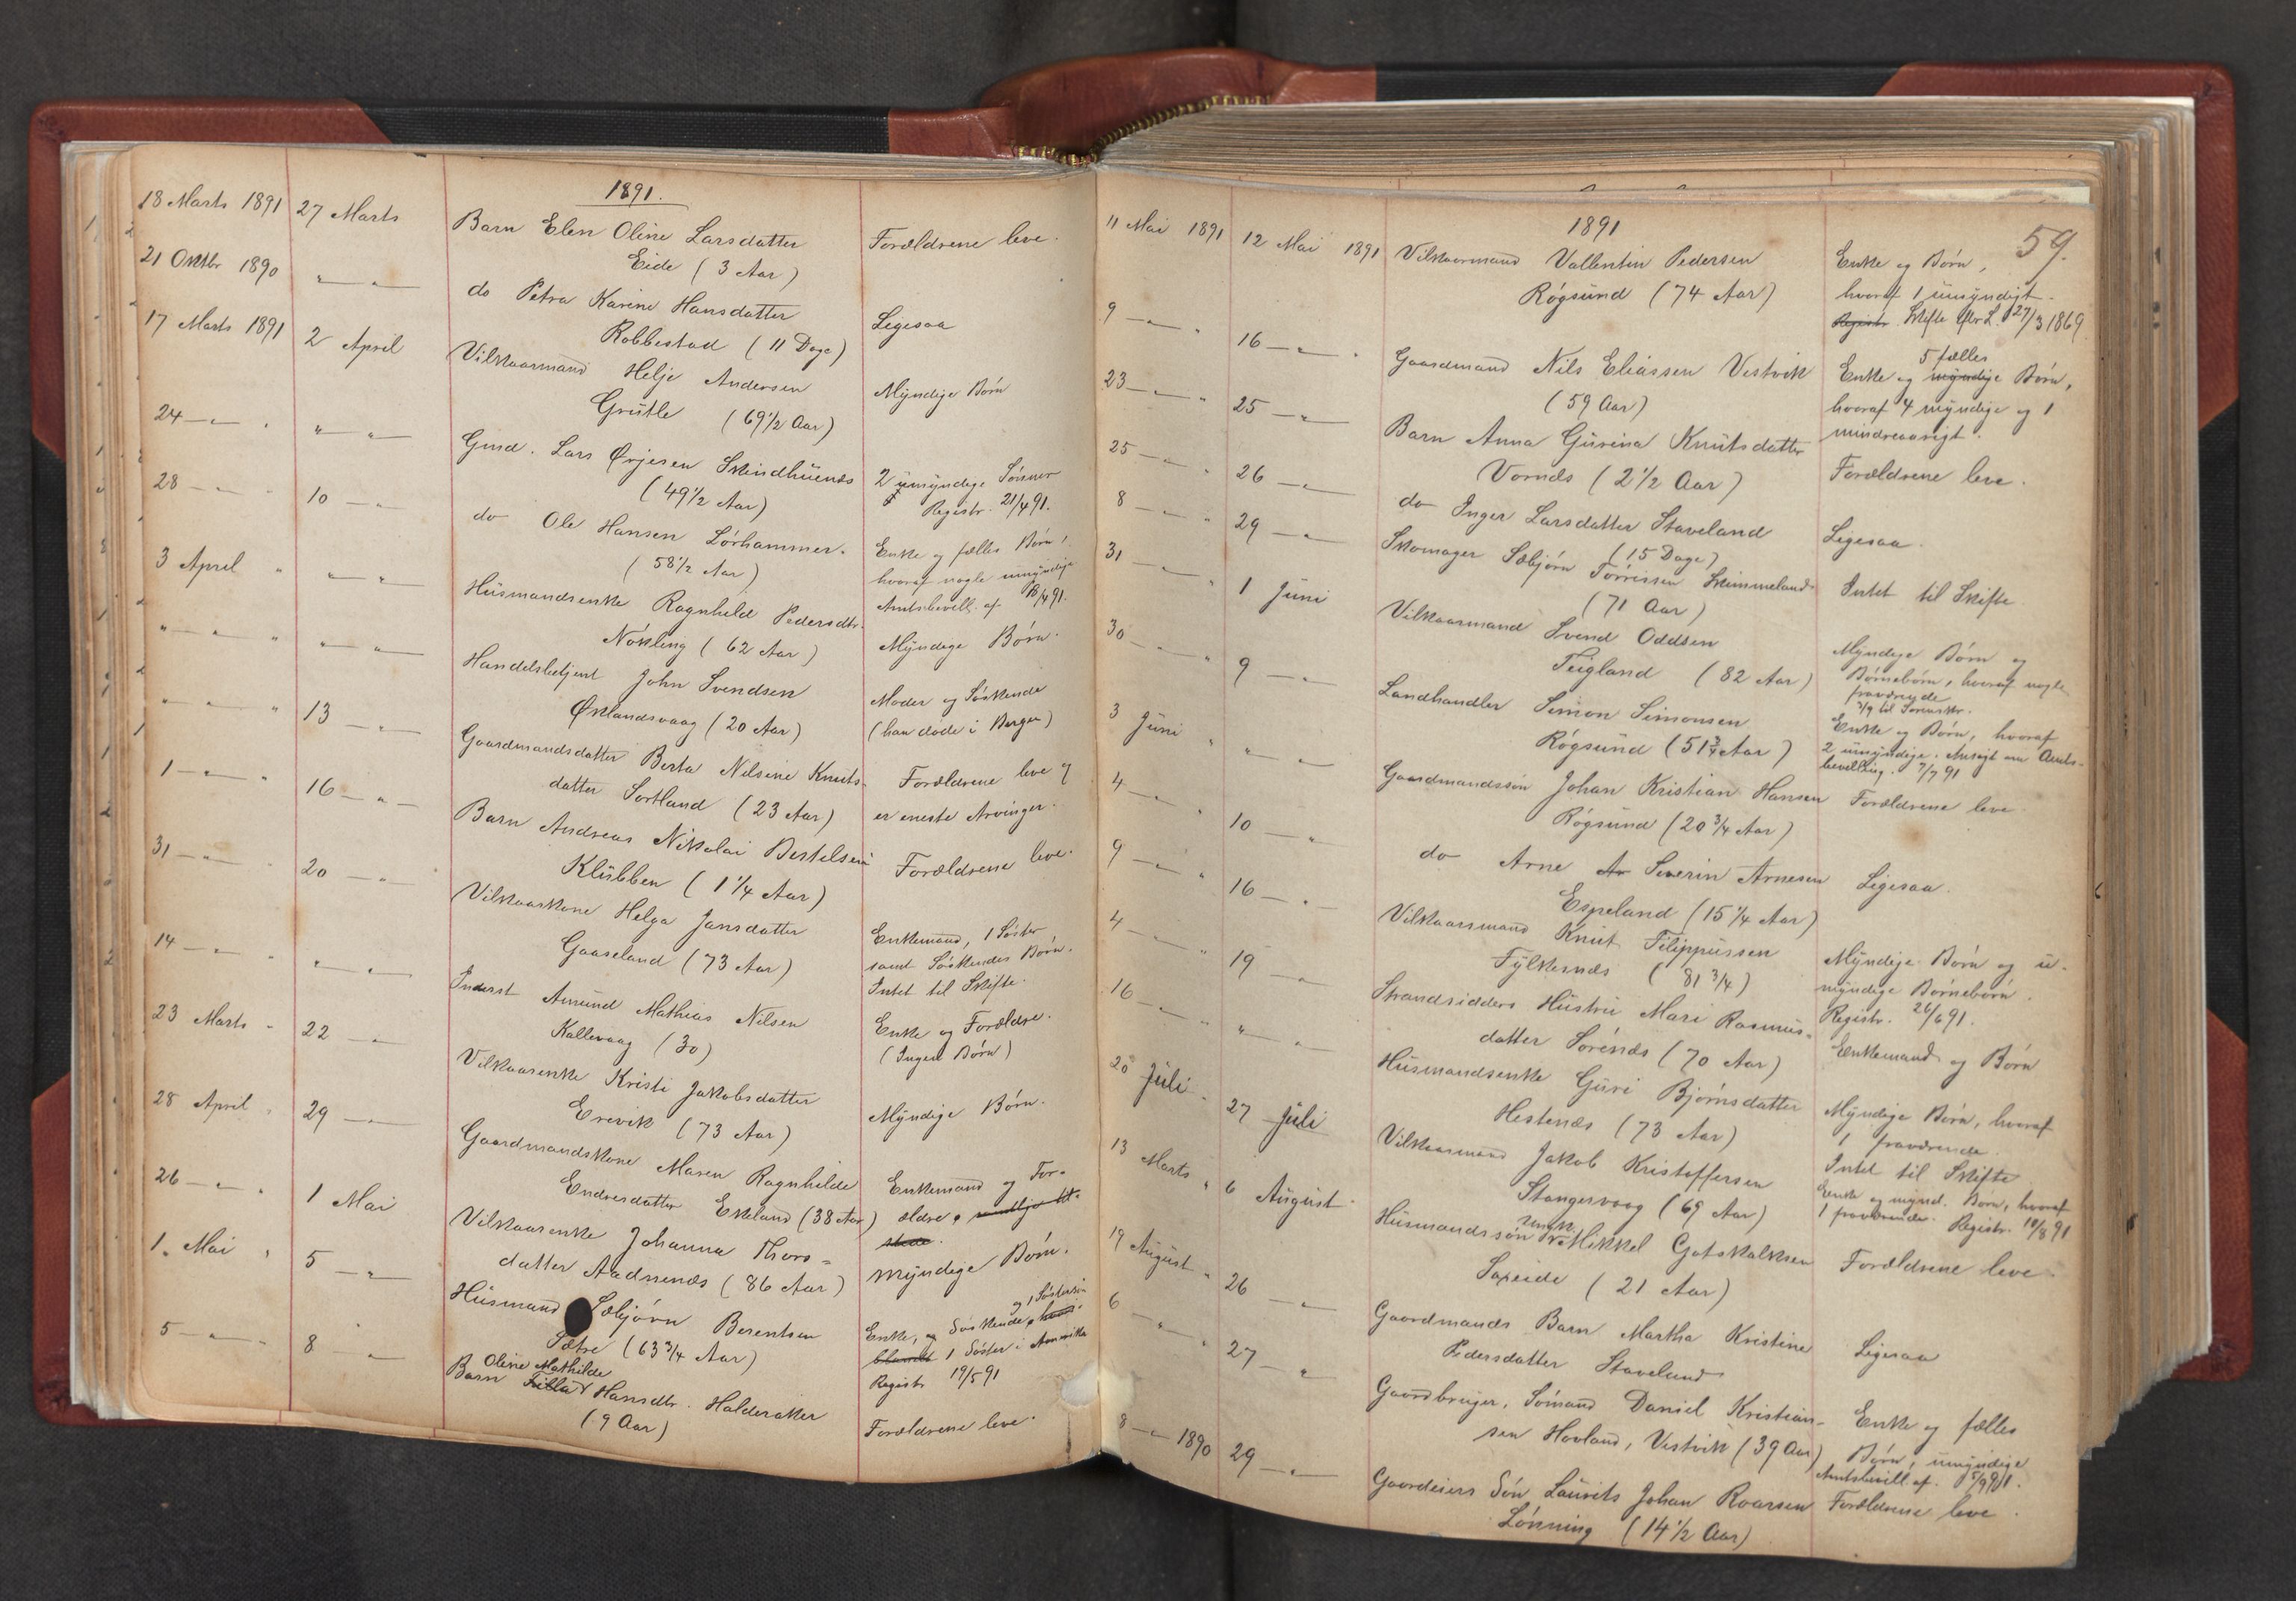 1891.
18 Marts 1891 27 Marts Barn Elen Oline Larsdatter Forældrene leve.
Eide (3 Aar)
21 Oktbr 1890 " — " — do Petra Karine Hansdatter Ligesaa
Robbestad (11 Dage)
17 Marts 1891 2 April Vilkaarmand Helje Andersen Myndige Børn
Grutle (69 1/2 Aar)
24 — " — " — " — Gmd. Lars Ørjesen Skindhuenæs 2 umyndige Sønner
(49 1/2 Aar) Registr. 21/4 91.
28 — " — 10 — " — do Ole Hansen Lørhammer. Enke og fælles Børn,
(58 1/2 Aar) hvoraf nogle umyndige
Amtsbevill. af 18/4 91.
3 April " " — " — Husmandsenke Ragnhild Pedersdtr. Myndige Børn.
Nøkling (62 Aar)
" — " — " " — " — Handelsbetjent John Svendsen Moder og Søskende
Øklandsvaag (20 Aar) (han døde i Bergen)
" — " — " 13 — " — Gaardmandsdatter Berta Nilsine Knuts- Forældrene leve og
datter Sortland (23 Aar) er eneste Arvinger.
1 — " — " 16 — " — Barn Andreas Nikolai Bertelsen Forældrene leve.
Klubben (1 1/4 Aar)
31 — " — 20 — " — Vilkaarkone Helga Jansdatter Enkemand, 1 Søster
Gaaseland (73 Aar) samt Søskendes Børn.
Intet til Skifte.
14 — " — " — " — Inderst Amund Mathias Nilsen Enke og Forældre.
Kallevaag (30) (Ingen Børn)
23 Marts " 22 — " — Vilkaarenke Kristi Jakobsdatter Myndige Børn.
Erevik (73 Aar)
28 April " 29 — " — Gaardmandskone Maren Ragnhilde Enkemand og For-
Endresdatter Ekeland (38 Aar) ældre,
26 — " — " 1 Mai Vilkaarenke Johanna Thors- myndige Børn.
datter Aadnenæs (86 Aar)
1. Mai " 5 — " — Husmand Sæbjørn Berentsen Enke, og Søskende, og 1 Søstersøn
Sætre (63 3/4 Aar) blandt 1 Søster i Amerika
Registr 19/5 91
5 — " — 8 — " — Barn Oline Mathilde Hansdtr. Halderaker Forældrene leve.
(9 Aar)
1891
59.
11 Mai 1891 12 Mai 1891 Vilkaarmand Vallentin Pedersen Enke og Børn,
Røgsund (74 Aar) hvoraf 1 umyndigt.
Registr. Skifte efter L. 27/3 1869
9 — " — " 16 — " — Gaardmand Nils Eliassen Vestvik Enke og 5 fælles myndige Børn,
(59 Aar) hvoraf 4 myndige og 1
mindreaarigt.
23 — " — " 25 — " — Barn Anna Gurina Knutsdatter Forældrene leve.
Vornæs (2 1/2 Aar)
25 — " — " 26 — " — do Inger Larsdatter Staveland Ligesaa.
(15 Dage)
8 — " — " 29 — " — Skomager Sæbjørn Tørrissen Skimmeland. Intet til Skifte
(71 Aar)
31 — " — " 1 Juni Vilkaarmand Svend Oddsen Myndige Børn og
Teigland (82 Aar) Børnebørn, hvoraf nogle
fraværende
30 — " — " 9 — " — Landhandler Simon Simonsen Enke og Børn, hvoraf
Røgsund (51 3/4 Aar) 2 umyndige. Ansøgt om Amts-
bevilling. 7/7 91
3 Juni " " — " — Gaardmandssøn Johan Kristian Hansen Forældrene leve.
Røgsund (20 3/4 Aar)
4 — " — " 10 — " — do Arne Ar Severin Arnesen Ligesaa.
Espeland (15 1/4 Aar)
9 — " — " 16 — " — Vilkaarsmand Knut Filippussen Myndige Børn og u-
Fylkesnæs (81 3/4) myndige Børnebørn.
Registr. 26/6 91.
4 — " — " 19 — " — Strandsidders Hustru Mari Rasmus- Enkemand og Børn
datter Sørenæs (70 Aar)
16 — " — " " — " — Husmandsenke Guri Bjørnsdatter Myndige Børn, hvoraf
Hestenæs (73 Aar) 1 fraværende.
Intet til Skifte
20 Juli " 27 Juli Vilkaarmand Jakob Kristoffersen Enke og mynd. Børn, hvoraf
Stangervaag (69 Aar) 1 fraværende. Registr. 10/8 91
13 Marts " 6 August Husmandssøn Mikkel Gotskalksen Forældrene leve
Saxeide (21 Aar)
19 August " 26 — " — Gaardmands Barn Martha Kristine Ligesaa
Pedersdatter Staveland
6 — " — " 27 — " — Gaardbruger, Sømand Daniel Kristian- Enke og fælles
sen Hovland, Vestvik (39 Aar) Børn, umyndige
Amtsbevill. af 5/9 91.
8 — " — 1890 29 — " — Gaardeiers Søn Laurits Johan Roarsen Forældrene leve.
Lønning (14 1/2 Aar)